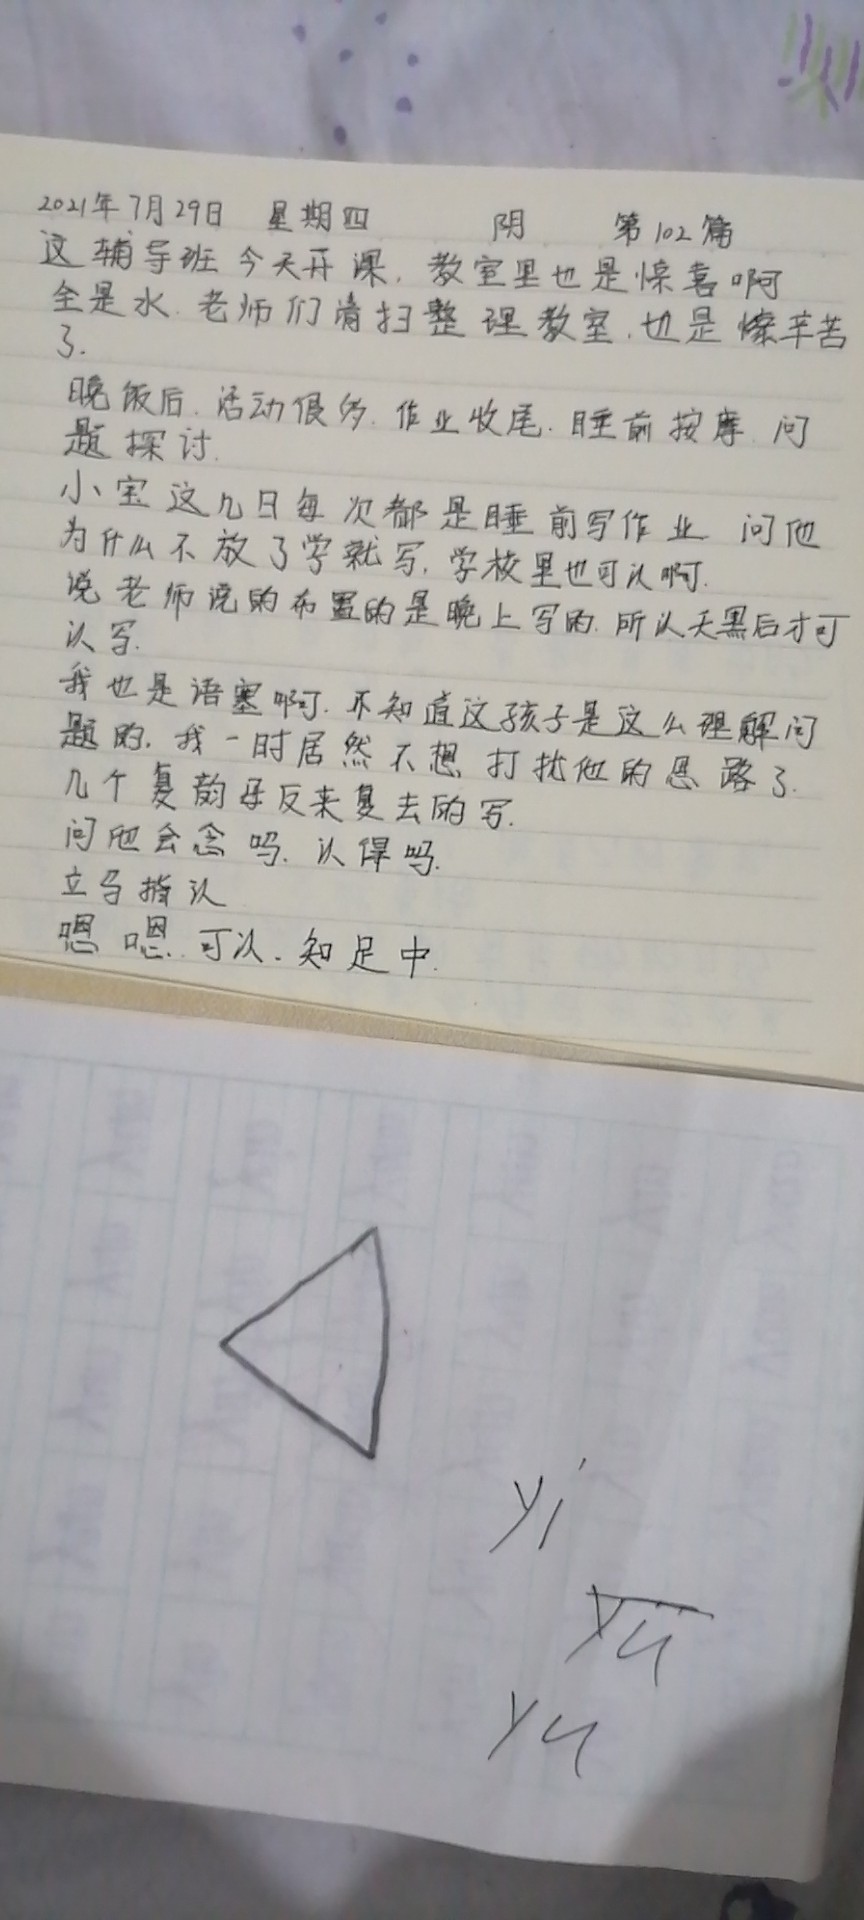 2021年7月29日 星期四 阴 第102篇
这辅导班今天开课,教室里也是惊喜啊
全是水.老师们清扫整理教室.也是怪辛苦
了.
晚饭后.活动很多.作业收尾.睡前按摩.问
题探讨.
小宝这几日每次都是睡前写作业 问他
为什么不放了学就写,学校里也可以啊.
说老师说的布置的是晚上写的.所以天黑后才可
以写.
我也是语塞啊.不知道这孩子是这么理解问
题的.我一时居然不想打扰他的思路了.
几个复韵母反来复去的写.
问他会念吗.认得吗.
立马指认
嗯嗯.可以.知足中.
yi
yu
yu